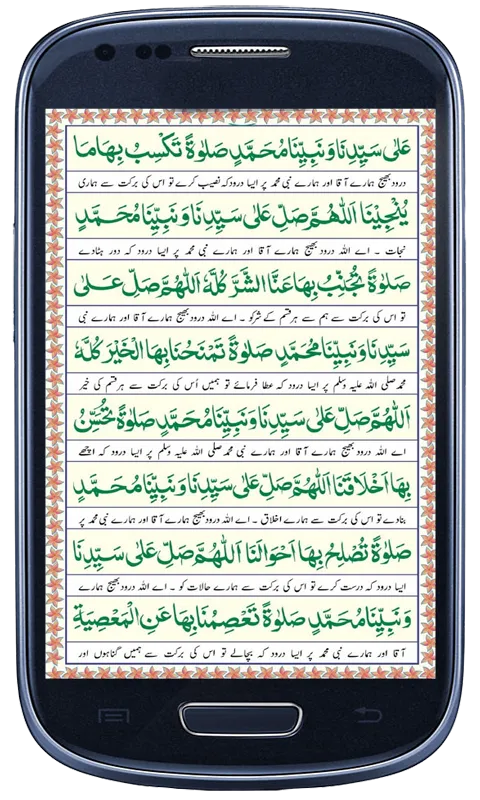 عَلٰى سَيِّدِنَا وَنَبِيِّنَا مُحَمَّدٍ صَلٰوةً تَكْسِبُ بِهَا مَا
درود بھیج ہمارے آقا اور ہمارے نبی محمد پر ایسا درود کہ نصیب کرے تو اس کی برکت سے ہماری
يُنْجِيْنَا اَللّٰهُمَّ صَلِّ عَلٰى سَيِّدِنَا وَنَبِيِّنَا مُحَمَّدٍ
نجات ۔ اے اللہ درود بھیج ہمارے آقا اور ہمارے نبی محمد پر ایسا درود کہ دور ہٹادے
صَلٰوةً تُجَنِّبُ بِهَا عَنَّا الشَّرَّ كُلَّهٗ اَللّٰهُمَّ صَلِّ عَلٰى
تو اس کی برکت سے ہم سے ہر قسم کے شر کو ۔ اے اللہ درود بھیج ہمارے آقا اور ہمارے نبی
سَيِّدِنَا وَنَبِيِّنَا مُحَمَّدٍ صَلٰوةً تَمْنَحُنَا بِهَا الْخَيْرَ كُلَّهٗ
محمد صلی اللہ علیہ وسلم پر ایسا درود کہ عطا فرمائے تو ہمیں اُس کی برکت سے ہر قسم کی خیر
اَللّٰهُمَّ صَلِّ عَلٰى سَيِّدِنَا وَنَبِيِّنَا مُحَمَّدٍ صَلٰوةً تُحَسِّنُ
اے اللہ درود بھیج ہمارے آقا اور ہمارے نبی محمد صلی اللہ علیہ وسلم پر ایسا درود کہ اچھے
بِهَا اَخْلَاقَنَا اَللّٰهُمَّ صَلِّ عَلٰى سَيِّدِنَا وَنَبِيِّنَا مُحَمَّدٍ
بنادے تو اس کی برکت سے ہمارے اخلاق ۔ اے اللہ درود بھیج ہمارے آقا اور ہمارے نبی محمد پر
صَلٰوةً تُصْلِحُ بِهَا اَحْوَالَنَا اَللّٰهُمَّ صَلِّ عَلٰى سَيِّدِنَا
ایسا درود کہ درست کرے تو اس کی برکت سے ہمارے حالات کو ۔ اے اللہ درود بھیج ہمارے
وَنَبِيِّنَا مُحَمَّدٍ صَلٰوةً تَعْصِمُنَا بِهَا عَنِ الْمَعْصِيَةِ
آقا اور ہمارے نبی محمد پر ایسا درود کہ بچالے تو اس کی برکت سے ہمیں گناہوں اور